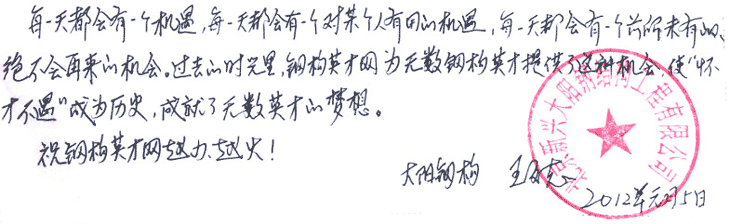 每一天都会有一个机遇，每一天都会有一个对某个人有用的机遇，每一天都会有一个前所未有的、
绝不会再来的机会。过去的时光里，钢构英才网为无数钢构英才提供了这种机会，使“怀
才不遇”成为历史，成就了无数英才的梦想。
祝钢构英才网越办越火！
太阳钢构 王
2012年元月5日
北京新兴太阳钢结构工程有限公司